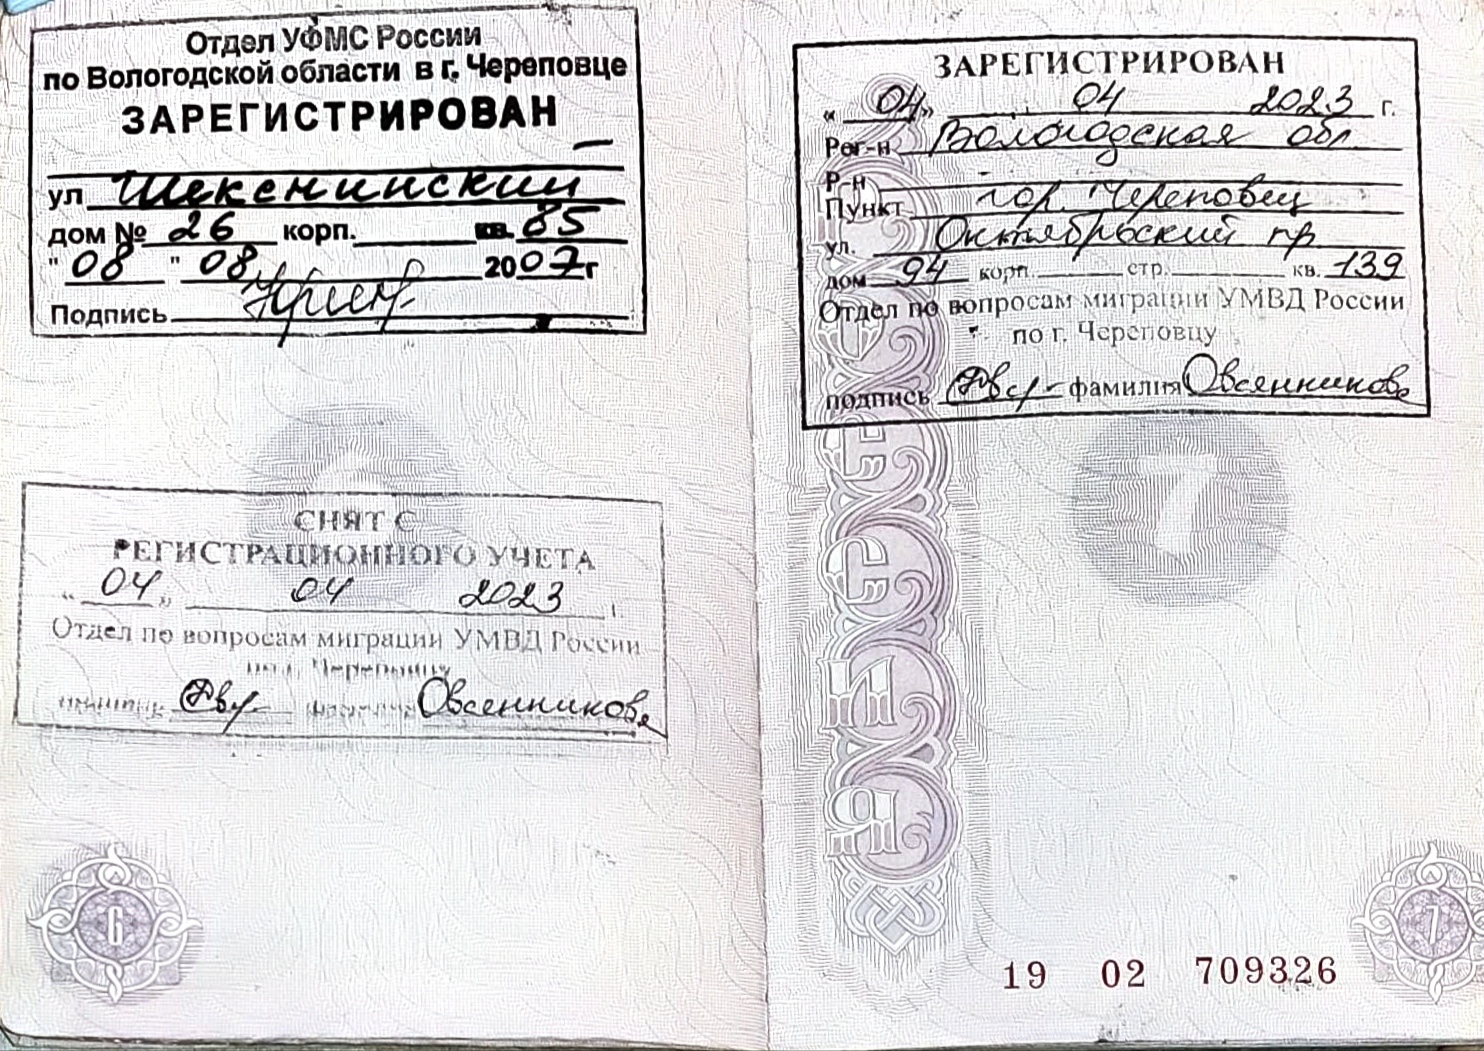 Отдел УФМС России
по Вологодской области в г. Череповце
ЗАРЕГИСТРИРОВАН
ул Шекснинский
дом № 26 корп. кв. 85
"08" 08 2007г
Подпись
СНЯТ С
РЕГИСТРАЦИОННОГО УЧЕТА
«04» 04 2023 г.
Отдел по вопросам миграции УМВД России
по г. Череповцу
подпись фамилия Овсянникова
6
ЗАРЕГИСТРИРОВАН
«04» 04 2023 г.
Рег-н Вологодская обл.
Р-н
Пункт гор. Череповец
ул. Октябрьский пр
дом 94 корп. стр. кв. 139
Отдел по вопросам миграции УМВД России
по г. Череповцу
подпись фамилия Овсянникова
7
7
19 02 709326